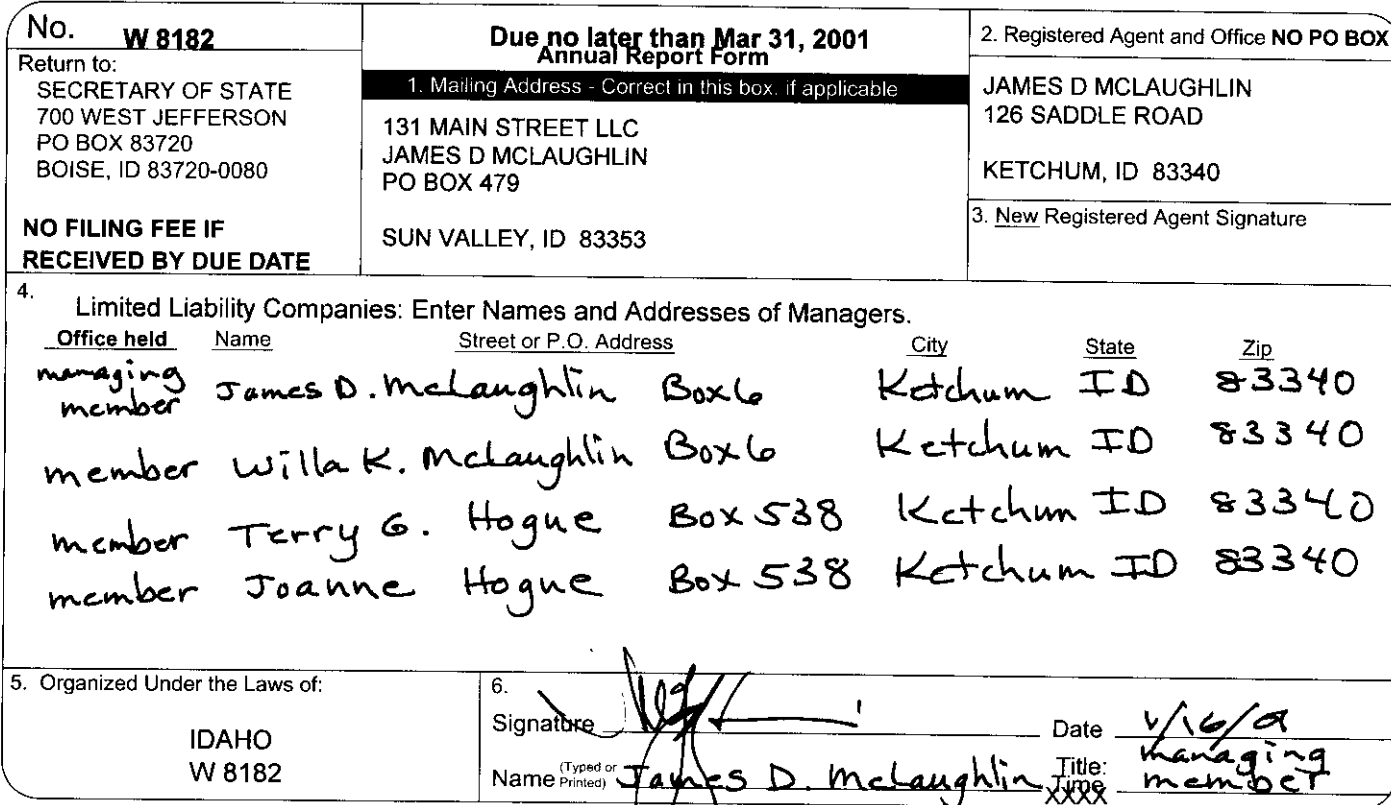 No. W 8182
Return to:
SECRETARY OF STATE
700 WEST JEFFERSON
PO BOX 83720
BOISE, ID 83720-0080
NO FILING FEE IF
RECEIVED BY DUE DATE
Due no later than Mar 31, 2001
Annual Report Form
1. Mailing Address - Correct in this box. if applicable
131 MAIN STREET LLC
JAMES D MCLAUGHLIN
PO BOX 479
SUN VALLEY, ID 83353
2. Registered Agent and Office NO PO BOX
JAMES D MCLAUGHLIN
126 SADDLE ROAD
KETCHUM, ID 83340
3. New Registered Agent Signature
4.
Limited Liability Companies: Enter Names and Addresses of Managers.
Office held Name Street or P.O. Address City State Zip
managing
member James D. McLaughlin Box 6 Ketchum ID 83340
member Willa K. McLaughlin Box 6 Ketchum ID 83340
member Terry G. Hogue Box 538 Ketchum ID 83340
member Joanne Hogue Box 538 Ketchum ID 83340
5. Organized Under the Laws of:
IDAHO
W 8182
6.
Signature Date
Name (Typed or Printed) James D. McLaughlin Title: managing member
Time
XXXX